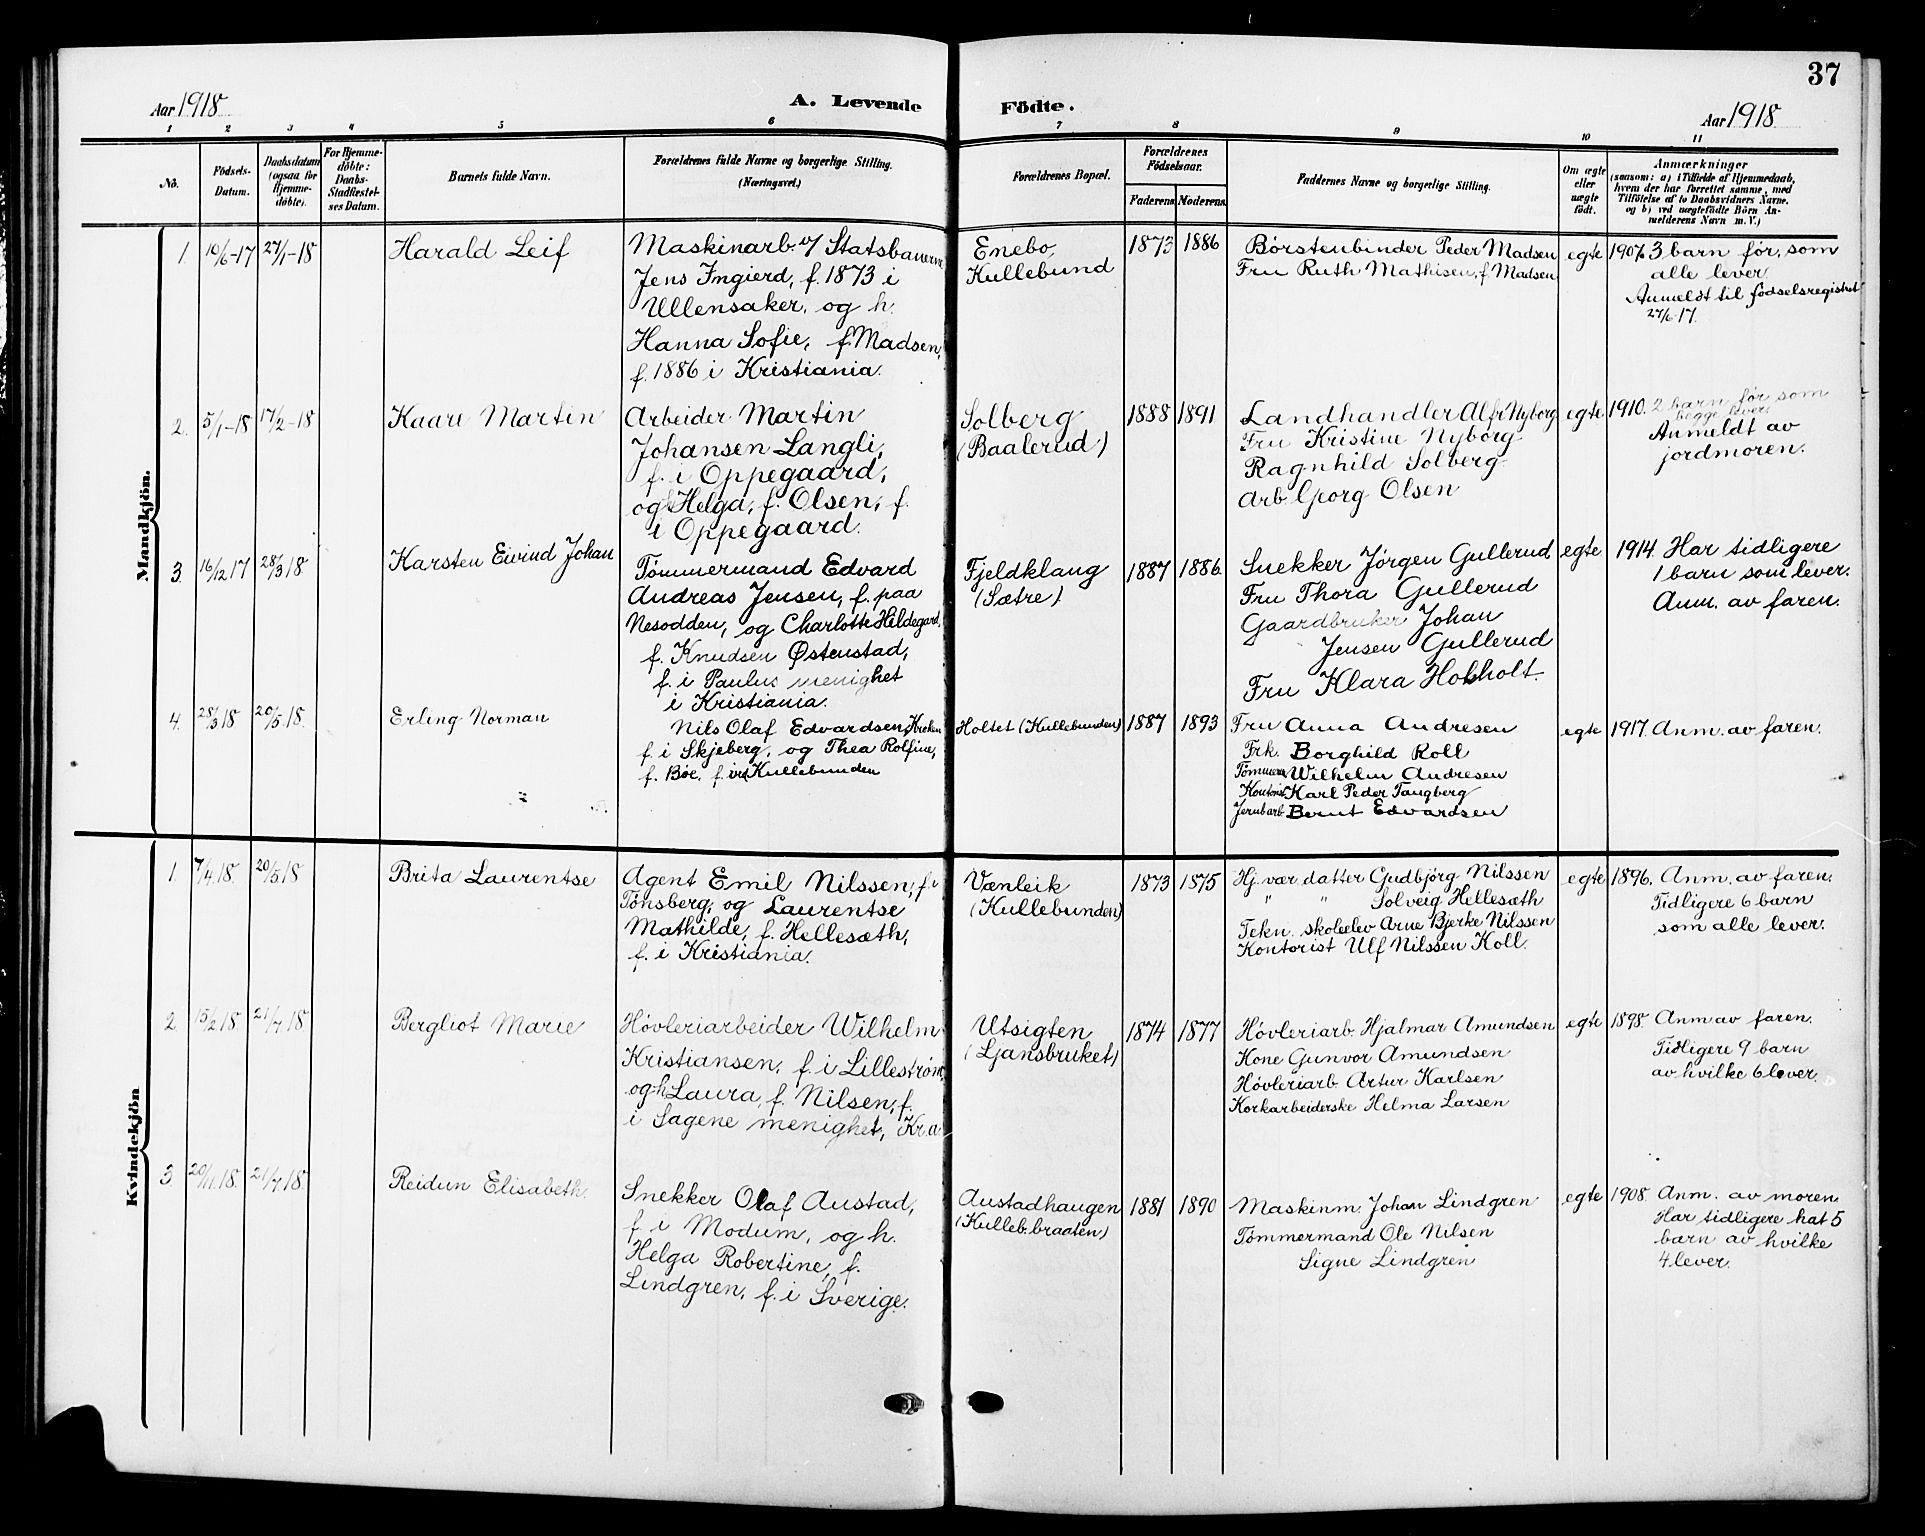 37
Aar 1918
A. Levende Födte.
Aar 1918
1 2 3 4 5 6 7 8 9 10 11
No.
Födsels-Datum.
Daabsdatum (ogsaa for Hjemme-døbte).
For Hjemme-døbte: Daabs-Stadfæstel-ses Datum.
Barnets fulde Navn.
Forældrenes fulde Navne og borgerlige Stilling. (Næringsvei.)
Forældrenes Bopæl.
Forældrenes Födselsaar.
Faderens Moderens
Faddernes Navne og borgerlige Stilling.
Om ægte eller uægte födt.
Anmærkninger
(saasom: a) i Tilfælde af Hjemmedaab,
hvem der har forrettet samme, med
Tilföielse af to Daabsvidners Navne,
og b) ved uægtefødte Börn An-
melderens Navn m. V.)
Mandkjön.
1. 19/6-17 27/1-18 Harald Leif
Maskinarb. v/ Statsbanerne
Jens Ingierd, f. 1873 i
Ullensaker, og h.
Hanna Sofie, f. Madsen,
f. 1886 i Kristiania.
Enebo,
Kullebund
1873 1886
Børstenbinder Peder Madsen
Fru Ruth Mathisen, f. Madsen
egte
1907. 3 barn før, som
alle lever.
Anmeldt til fødselsregistret
27/6-17.
2. 5/1-18 17/2-18 Kaare Martin
Arbeider Martin
Johansen Langli,
f. i Oppegaard,
og h Helga, f. Olsen, f.
i Oppegaard.
Solberg
(Baalerud)
1888 1891
Landhandler Alfr Nyborg
Fru Kristine Nyborg
Ragnhild Solberg
Arb. Georg Olsen
egte
1910. 2 barn før som
begge lever.
Anmeldt av
jordmoren.
3. 16/12 17 28/3 18 Karsten Eivind Johan
Tømmermand Edvard
Andreas Jensen, f. paa
Nesodden, og Charlotte Hildegard,
f. Knudsen Østenstad,
f. i Paulus menighet
i Kristiania.
Fjeldklang
(Sætre)
1887 1886.
Snekker Jørgen Gullerud
Fru Thora Gullerud
Gaardbruker Johan
Jensen Gullerud
Fru Klara Hokholt
egte
1914. Har tidligere
1 barn som lever.
Anm. av faren.
4. 28/3 18 20/5-18. Erling Norman
Nils Olaf Edvardsen, Kroken
f. i Skjeberg, og Thea Rolfine,
f. Bøe, f. i Kullebunden
Holtet (Kullebunden)
1887 1893
Fru Anna Andresen
Frk. Borghild Koll
Tømmerm Wilhelm Andresen
Kontorist Karl Peder Tangberg
Jernbarb Bernt Edvardsen
egte
1917. Anm. av faren.
Kvindekjön
1. 7/4.18. 20/5 18 Brita Laurentse
Agent Emil Nilssen, f. i
Tønsberg, og Laurentse
Mathilde, f. Hellesæth,
f. i Kristiania.
Vænleik
(Kullebunden)
1873 1875
Hj. vær. datter Gudbjörg Nilssen
" " Solveig Hellesæth
Tekn. skoleelev Arne Bjerke Nilssen
Kontorist Ulf Nilssen Koll.
egte
1896. Anm. av faren.
Tidligere 6 barn
som alle lever.
2. 15/2 18 21/7 18 Bergliot Marie
Høvleriarbeider Wilhelm
Kristiansen, f. i Lillestrøm,
og h Laura, f. Nilsen, f.
i Sagene menighet, Kr.a
Utsigten
(Ljansbruket)
1874 1877
Høvleriarb. Hjalmar Amundsen
Kone Gunvor Amundsen
Høvleriarb. Artur Karlsen
Korkarbeiderske Helma Larsen
egte
1898. Anm av faren.
Tidligere 9 barn
av hvilke 6 lever.
3. 20/11.18. 21/7.18. Reidun Elisabeth.
Snekker Olaf Austad,
f. i Modum, og h.
Helga Robertine, f.
Lindgren, f. i Sverige.
Austadhaugen
(Kulleb.braaten)
1881 1890
Maskinm. Johan Lindgren
Tømmermand Ole Nilsen
Signe Lindgren
egte
1908. Anm. av moren.
Har tidligere hat 5
barn av hvilke
4 lever.